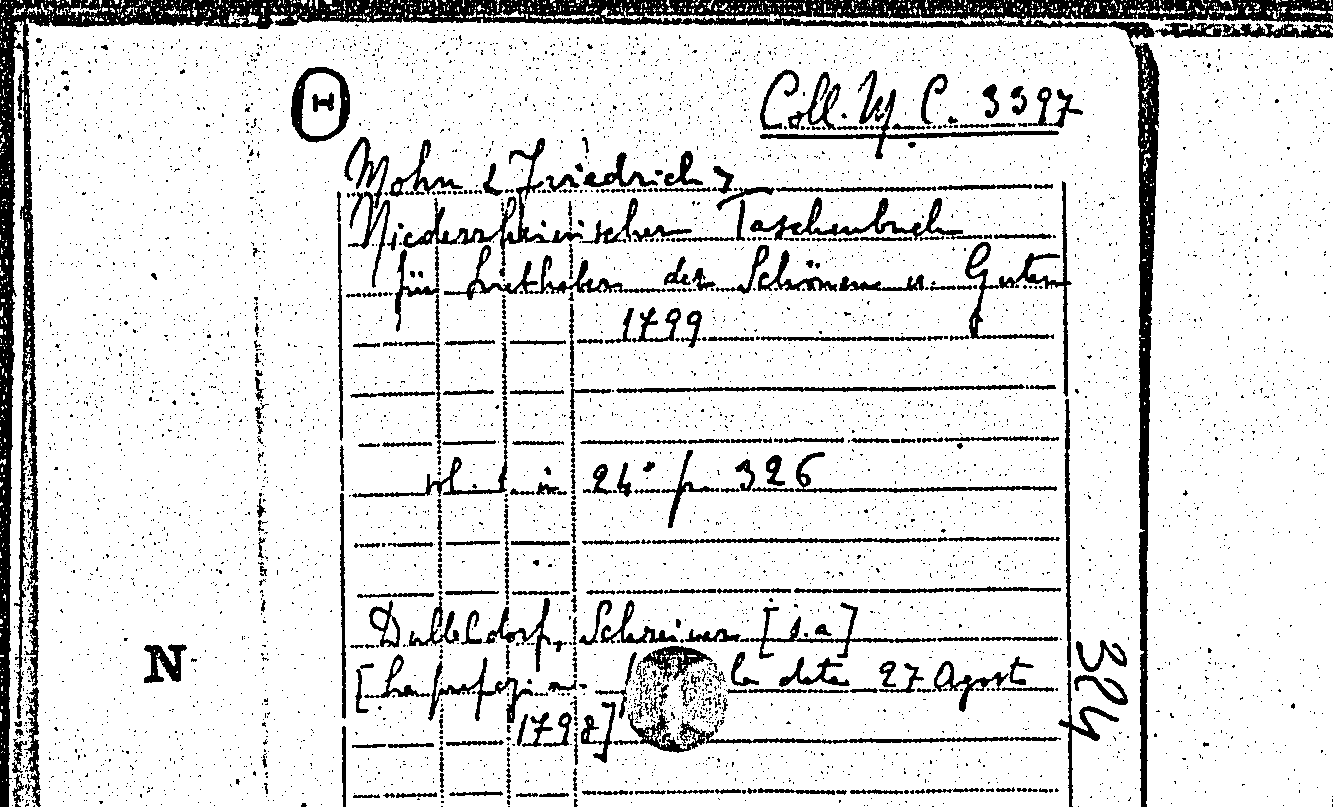 Coll. M. C. 3397
Mohn < Friedrich >
Niederrheinischer Taschenbuch
für Liebhaber des Schönen u. Guten
1799
vol. 1. in 24° p. 326
Dusseldorf, Schreiner [s.a]
[La prefazione la data 27 Agosto
1798]
324
N